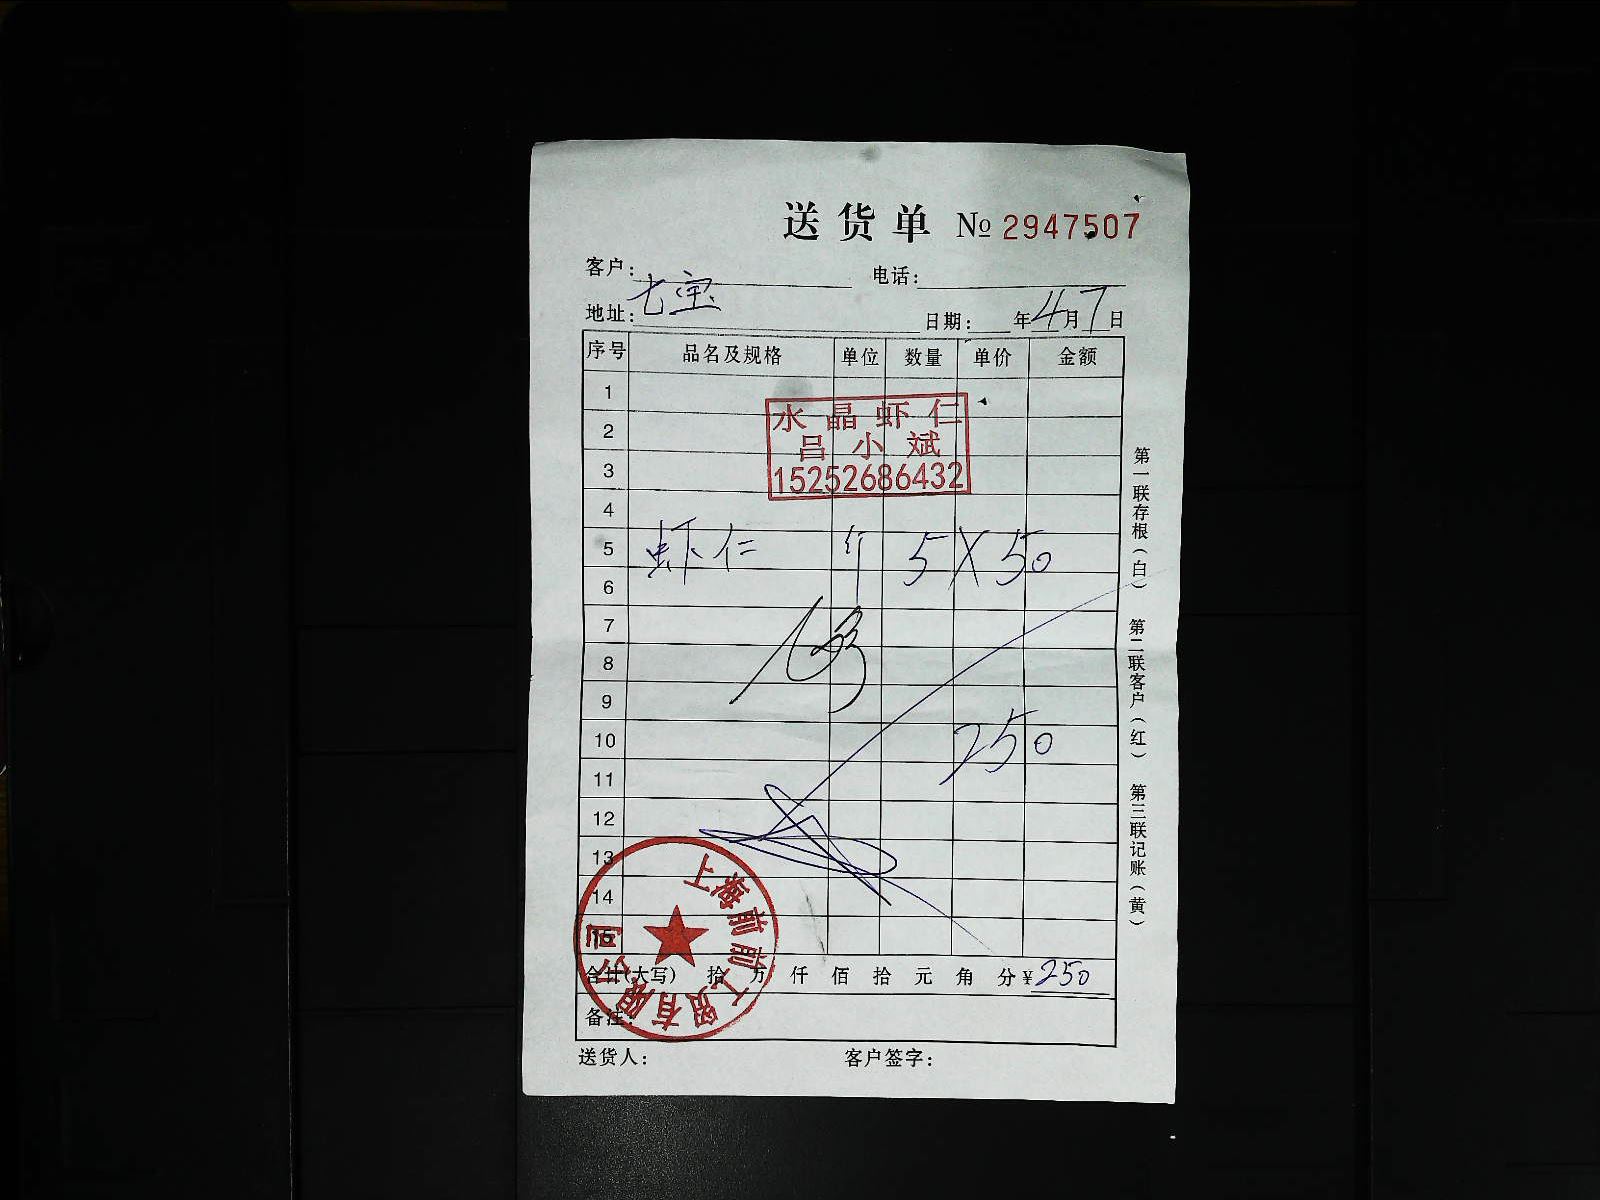 送货单 № 2947507
客户: 七宝 电话:
地址: 日期: 年4月7日
序号 品名及规格 单位 数量 单价 金额
1
水晶虾仁
2
吕小斌
3
15252686432
4
5 虾仁 5×50
6
7
8
9
10 250
11
12
13
14
15
上海前前工贸有限公司
合计(大写) 拾 万 仟 佰 拾 元 角 分¥250
备注:
送货人: 客户签字:
第一联存根(白) 第二联客户(红) 第三联记账(黄)